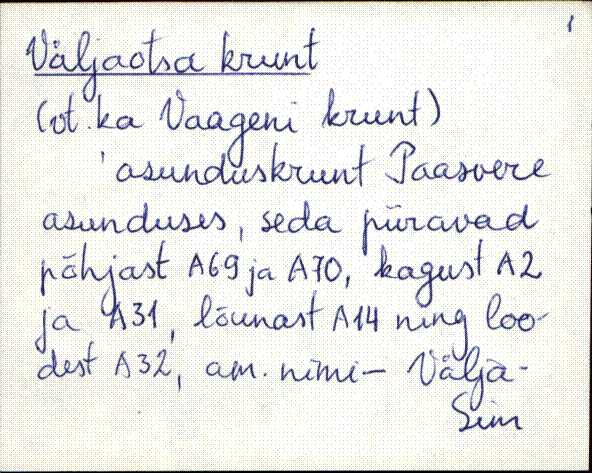 1
Väljaotsa krunt
(vt. ka Vaageni krunt)
'asunduskrunt Paasvere
asunduses, seda piiravad
põhjast A69 ja A70, kagust A2
ja A31, lõunast A14 ning loo-
dest A32, am. nimi – Välja-
Sim